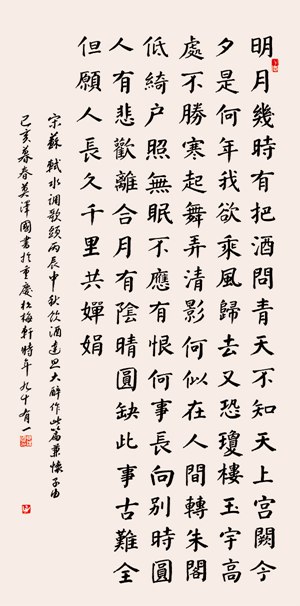 明月幾時有把酒問青天不知天上宮闕今
夕是何年我欲乘風歸去又恐瓊樓玉宇高
處不勝寒起舞弄清影何似在人間轉朱閣
低綺户照無眠不應有恨何事長向別時圓
人有悲歡離合月有陰晴圓缺此事古難全
但願人長久千里共嬋娟
宋蘇軾水调歌頭丙辰中秋饮酒達旦大醉作此篇兼懷子由
己亥暮春莫澤國書於重慶梅軒時年九十有一